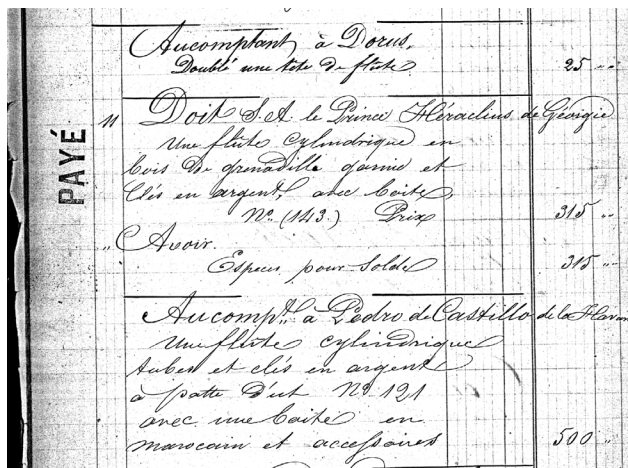 Au comptant à Dorus,
Doublé une tête de flûte 25 " "
PAYÉ
11 Doit S. A. le Prince Héraclius de Géorgie
Une flûte cylindrique en
bois de grenadille garnie et
Clés en argent, avec boîte,
No. (143.) Prix 315 " "
" Avoir.
Espèces pour Solde 315 " "
Au compt. à Pedro de Castillo de la Havan
Une flûte cylindrique
tubes et clés en argent
à patte d'ut No. 121
avec une boîte en
marocain et accessoires 500 "